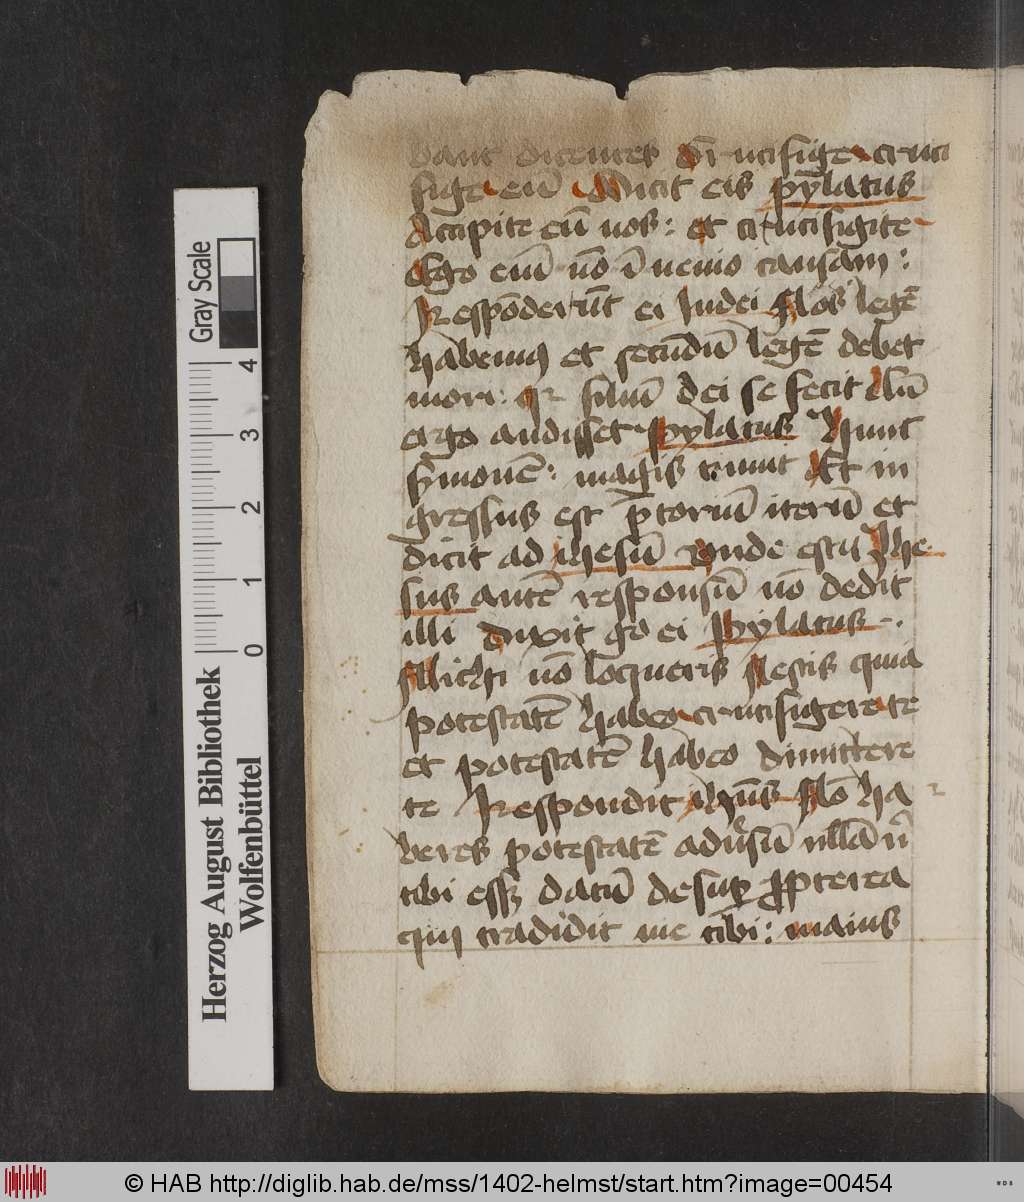 bant dicentes Crucifige cruci
fige eū Dicit eis pylatus
Accipite eū vos: et crucifigite
Ego eni nō ī uenio causam:
Respōderūt ei Iudei Nos legē
habemus et secūdū legē debet
mori: qr filiū dei se fecit Cū
ergo audisset pylatus hunc
sermonē: magis timuit Et in
gressus est p̄toriū iterū et
dicit ad ihesū vnde es tu Ihe
sus autē responsū nō dedit
illi dixit ergo ei pylatus
Michi nō loqueris Nescis quia
potestatē habeo crucifigere te
et potestatē habeo dimittere
te Respondit ihūs Nō ha
beres potestatē aduersū me ullā n
tibi esset datū desup propterea
qui tradidit me tibi: maius
Gray Scale
4
3
2
1
0
Herzog August Bibliothek
Wolfenbüttel
© HAB http://diglib.hab.de/mss/1402-helmst/start.htm?image=00454